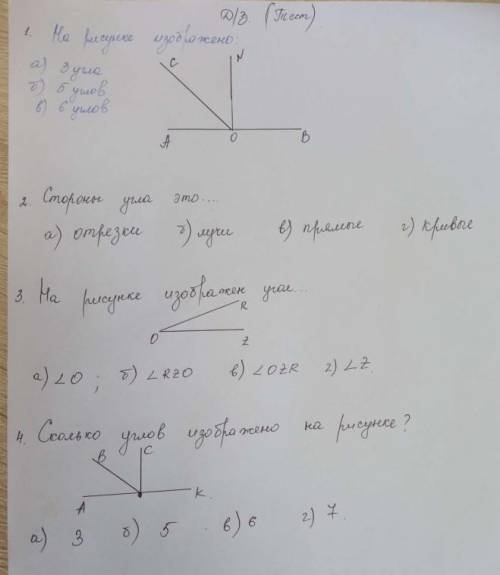 Д/З. (Тест).
1. На рисунке изображено:
а) 3 угла
б) 5 углов
в) 6 углов
C N
A O B
2. Стороны угла это....
а) отрезки б) лучи в) прямые г) кривые
3. На рисунке изображен угол...
R
O Z
а) ∠O ; б) ∠RZO в) ∠OZR г) ∠Z.
4. Сколько углов изображено на рисунке?
B C
A K.
а) 3 б) 5 в) 6 г) 7.